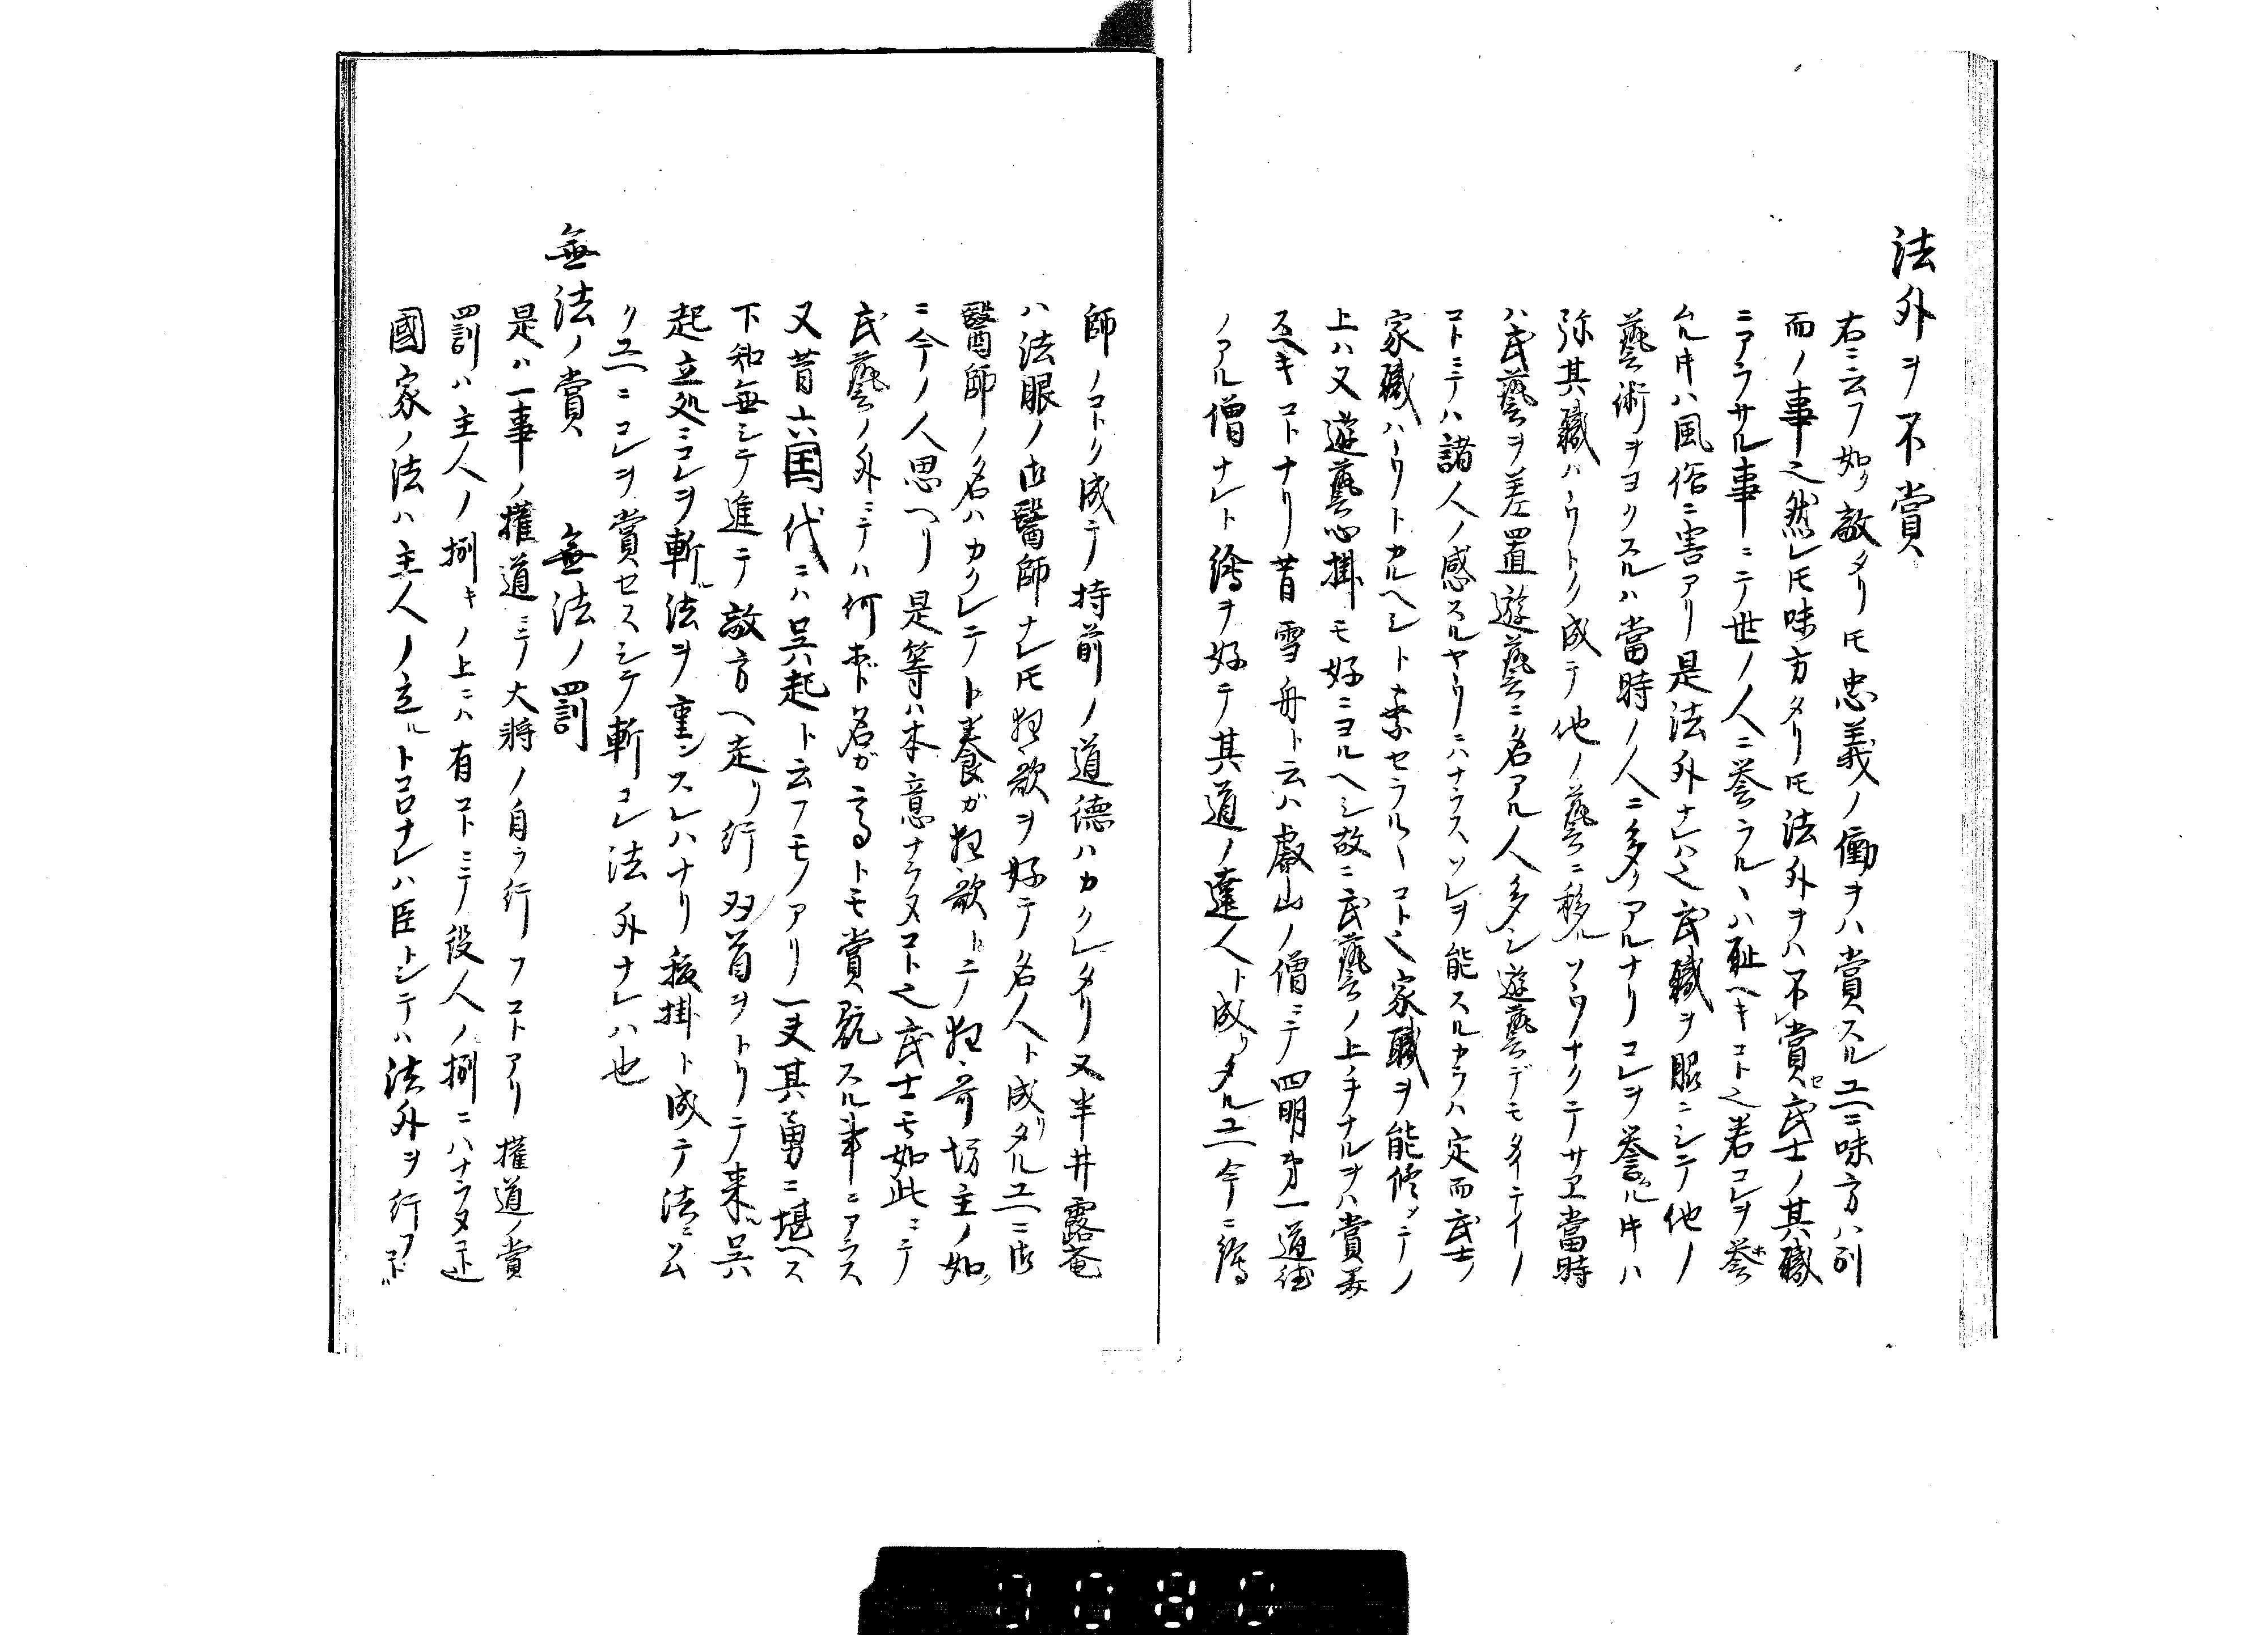 法外ヲ不賞
右ニ云フ如ク敵タリトモ忠義ノ働ヲハ賞スルユヱニ味方ハ別
而ノ事也然レトモ味方タリトモ法外ヲハ不レ賞セ武士ノ其職
ニアラサル事ニテ世ノ人ニ誉ラルヽハ耻ヘキコト也若コレヲ誉ホ
ムル片ハ風俗ニ害アリ是法外ナレハ也武職ヲ脇ニシテ他ノ
藝術ヲヨクスルハ當時ノ人ニ多クアルナリコレヲ誉ル片ハ
弥其職ハウトク成テ他ノ藝ニ移ルソウナクテサヱ當時
ハ武藝ヲ差置遊藝ニ名アル人多シ遊藝デモタイテイノ
コトニテハ諸人ノ感スルヤウニハナラスソレヲ能スルカラハ定而武士ノ
家職ハウトカルヘシト察セラルヽコト也家職ヲ能修メテノ
上ハ又遊藝心掛モ好ニヨルヘシ故ニ武藝ノ上手ナルヲハ賞美
スヘキコトナリ昔雪舟ト云ハ叡山ノ僧ニテ四明第一道徳
ノアル僧ナレト繪ヲ好テ其道ノ達人ト成タルユヱ今ニ繪
師ノコトク成テ持前ノ道德ハカクレタリ又半井露菴
ハ法眼ノ御醫師ナレトモ狂歌ヲ好テ名人ト成リタルユヱニ御
醫師ノ名ハカクレテ卜養ガ狂歌トテ狂哥坊主ノ如ク
ニ今ノ人思ヘリ是等ハ本意ナラヌコト也武士モ如此ニテ
武藝ノ外ニテハ何ホド名ガ高トモ賞翫スル事ニアラス
又昔六国代ニハ呉起ト云フモノアリ一夫其勇ニ堪ヘス
下知無シテ進テ敵方ヘ走リ行双首ヲトリテ来ル呉
起立処ニコレヲ斬ル法ヲ重ンスレハナリ抜掛ト成テ法ニソム
クユヱニコレヲ賞セスシテ斬コレ法外ナレハ也
無法ノ賞　無法ノ罰
是ハ一事ノ權道ニテ大將ノ自ラ行フコトアリ權道ノ賞
罰ハ主人ノ捌キノ上ニハ有コトニテ役人ノ捌ニハナラヌコト也
國家ノ法ハ主人ノ立ルトコロナレハ臣トシテハ法外ヲ行フコト